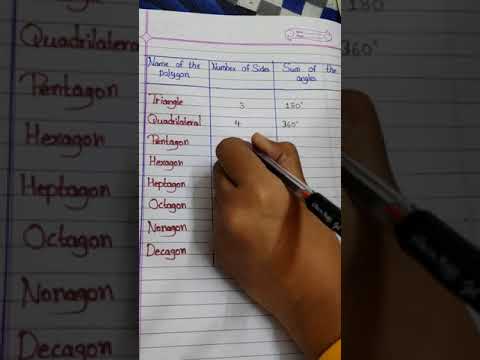 Name of the polygon Number of Sides Sum of the angles
Triangle 3 180°
Quadrilateral 4 360°
Pentagon
Hexagon
Heptagon
Octagon
Nonagon
Decagon
180
Quadrilateral 360°
Pentagon
Hexagon
Heptagon
Octagon
Nonagon
Decagon